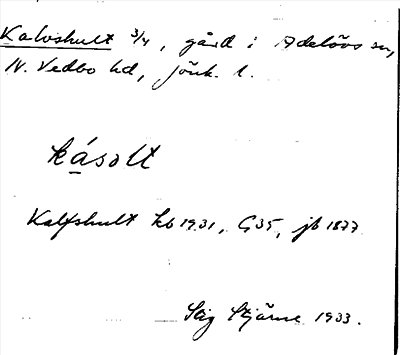 Kalvshult 3/4, gård i Adelövs sn,
N. Vedbo hd, jönk. l.
kásolt
Kalfshult hb 1931, G35, jb 1877
Stig Stjärne 1933.